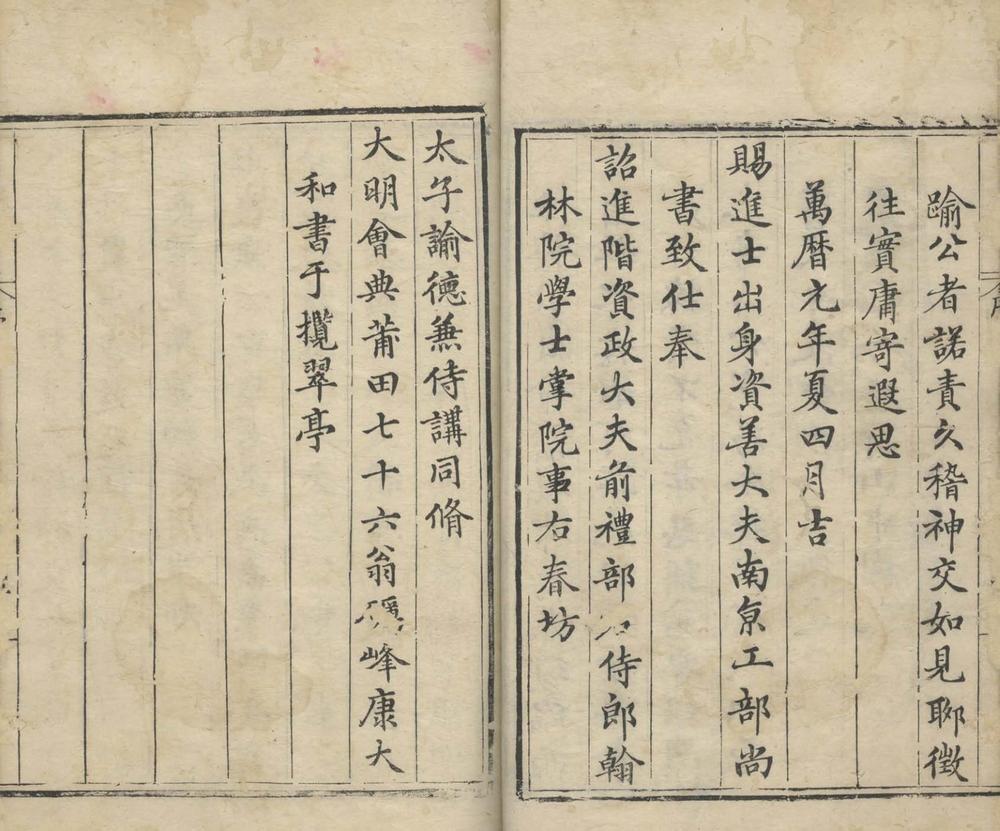 踰公者諾責久稽神交如見聊徵
往實庸寄遐思
萬曆元年夏四月吉
賜進士出身資善大夫南京工部尚
書致仕奉
詔進階資政大夫前禮部侍郎翰
林院學士掌院事右春坊
太子諭德兼侍講同脩
大明會典莆田七十六翁峰康大
和書于攬翠亭